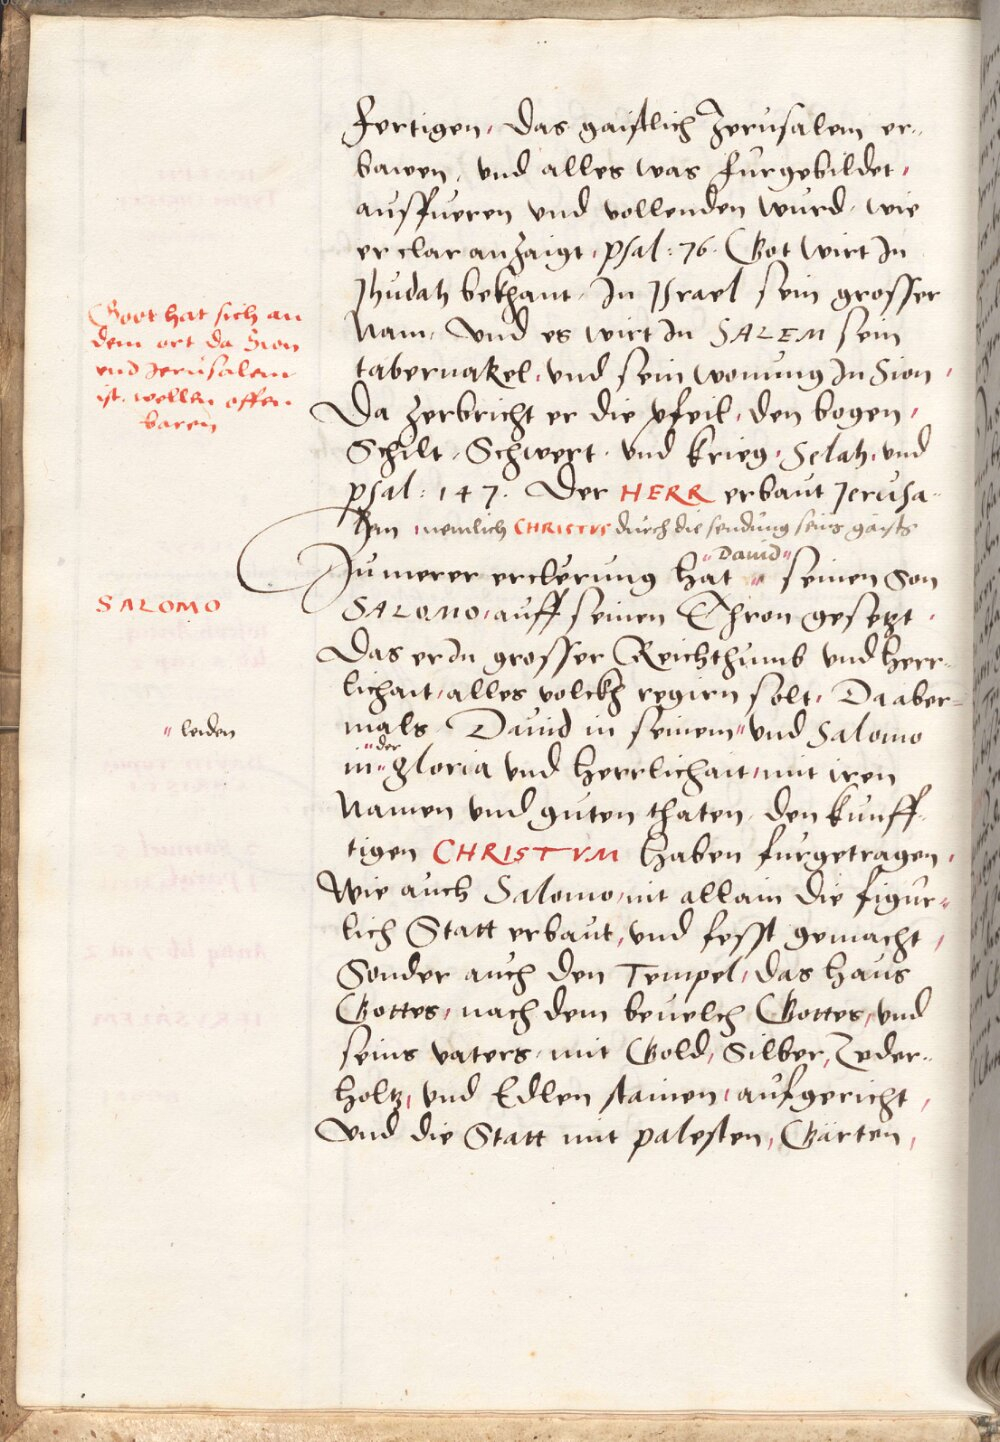 fertigen, Das gaistlich Jerusalem er-
bawen, vnd alles was furgebildet,
auffueren vnd vollenden wurd, wie
er clar anzaigt, psal: 76. Got wirt In
Jhudah bekhant, In Israel sein grosser
Nam, Vnd es wirt In SALEM sein
tabernakel, vnd sein wonung In Sion,
Da zerbricht er die pfeil, den bogen,
Schilt, Schwert, vnd krieg, Selah, vnd
psal: 147. Der HERR erbaut Jerusa-
lem, nemlich CHRISTUS durch die sendung seins gaists
Zu merer erclerung hat "Dauid" seinen Son
SALOMO, auff seinen Thron gesetzt,
Das er In grosser Reichthumb vnd herr-
lichait, alles volckh regirn solt, Da aber-
mals Dauid in seinem " vnd Salomo
in "der" gloria vnd herrlichait, mit iren
Namen vnd guten thaten, den kunff-
tigen CHRISTVM haben furgetragen,
Wie auch Salomo, nit allain die figur-
lich Statt erbaut, vnd fesst gemacht,
Sonder auch den Tempel, das haus
Gottes, nach dem beuelch Gottes, vnd
seins vaters, mit Gold, Silber, Zeder-
holtz, vnd Edlen stainen, aufgericht,
Vnd die Statt mit palesten, Gärten,
Goot hat sich an
dem ort da Sion
vnd Jerusalem
ist, wellen offen-
baren
SALOMO
" leiden